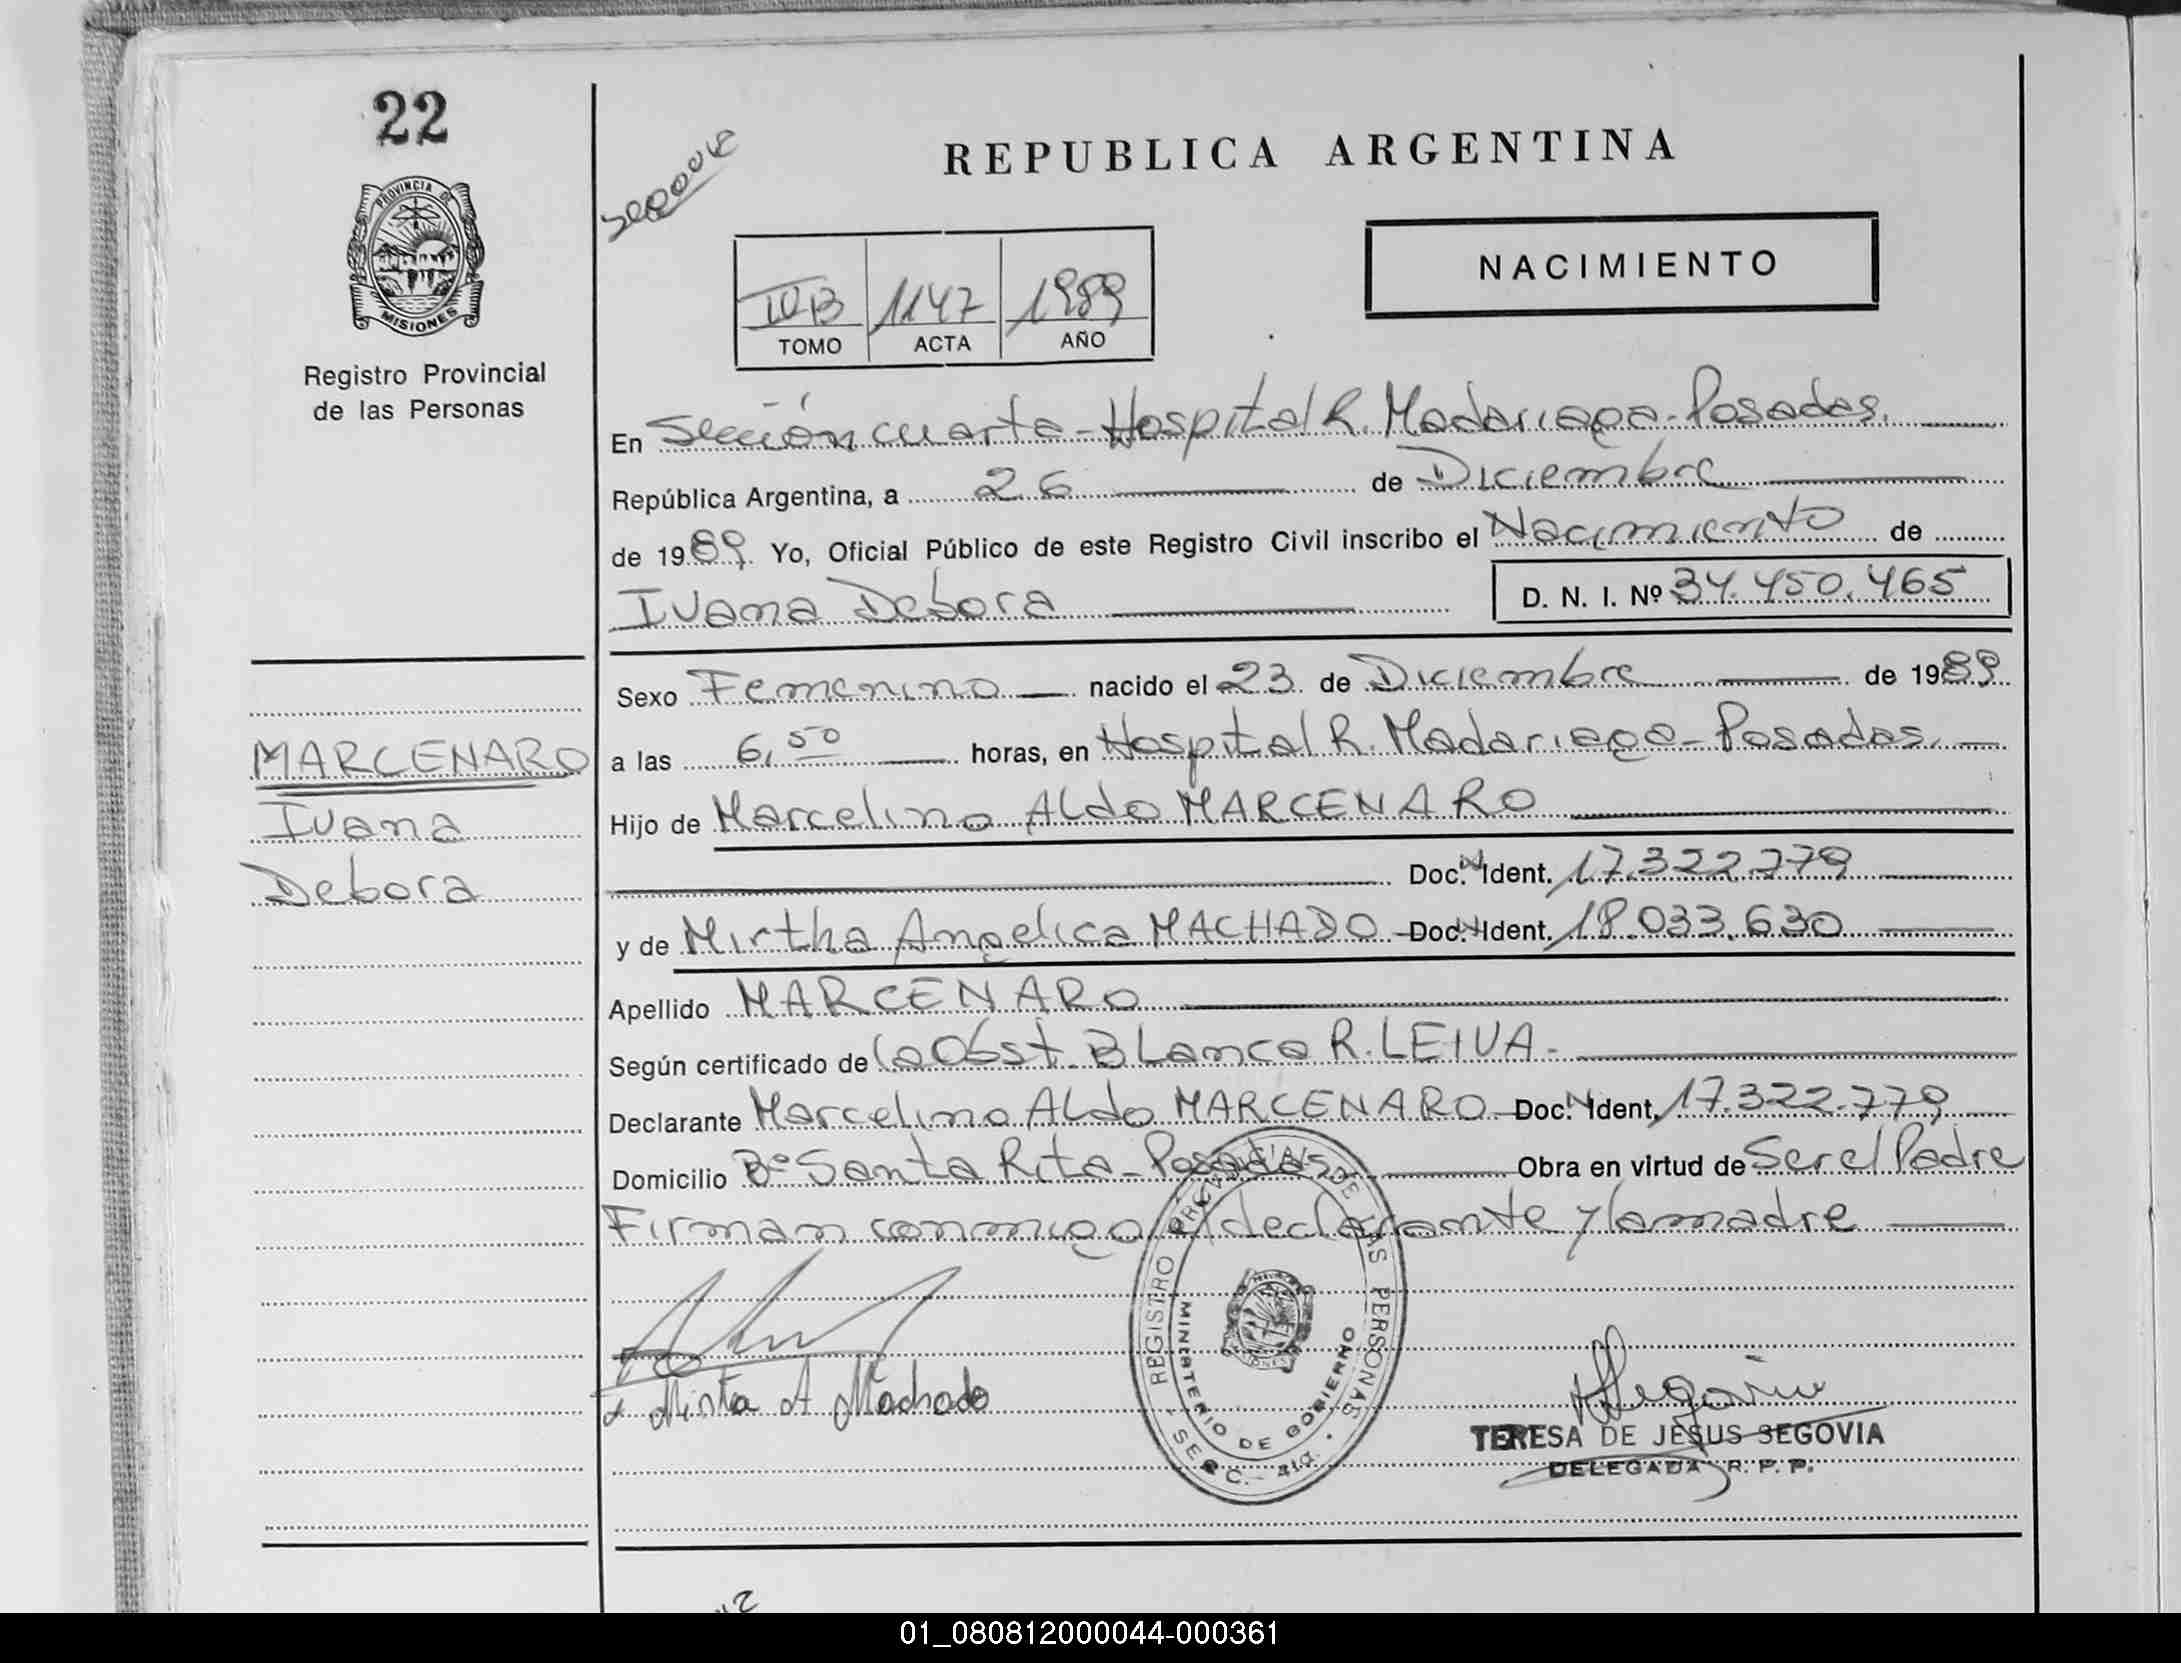 22
PROVINCIA DE
MISIONES
Registro Provincial
de las Personas
REPUBLICA ARGENTINA
NACIMIENTO
IVB 1147 1989
TOMO ACTA AÑO
En Sección cuarta - Hospital R. Madariaga - Posadas.
República Argentina, a 26 de Diciembre
de 1989. Yo, Oficial Público de este Registro Civil inscribo el Nacimiento de
Ivana Debora D. N. I. Nº 34.450.465
Sexo Femenino nacido el 23 de Diciembre de 1989
a las 6,50 horas, en Hospital R. Madariaga - Posadas.
Hijo de Marcelino Aldo MARCENARO
Doc. N Ident. 17.322.779
y de Mirtha Angelica MACHADO - Doc. N Ident. 18.033.630
Apellido MARCENARO
Según certificado de la Obst. Blanca R. LEIVA -
Declarante Marcelino Aldo MARCENARO - Doc. N Ident. 17.322.779
Domicilio Bº Santa Rita - Posadas Obra en virtud de Ser el Padre
Firman conmigo el declarante y la madre
MARCENARO
Ivana
Debora
Mirta A Machado
REGISTRO PROVINCIAL DE LAS PERSONAS
MINISTERIO DE GOBIERNO
SEC. 4ta.
Segovia
TERESA DE JESUS SEGOVIA
DELEGADA R. P. P.
01_080812000044-000361